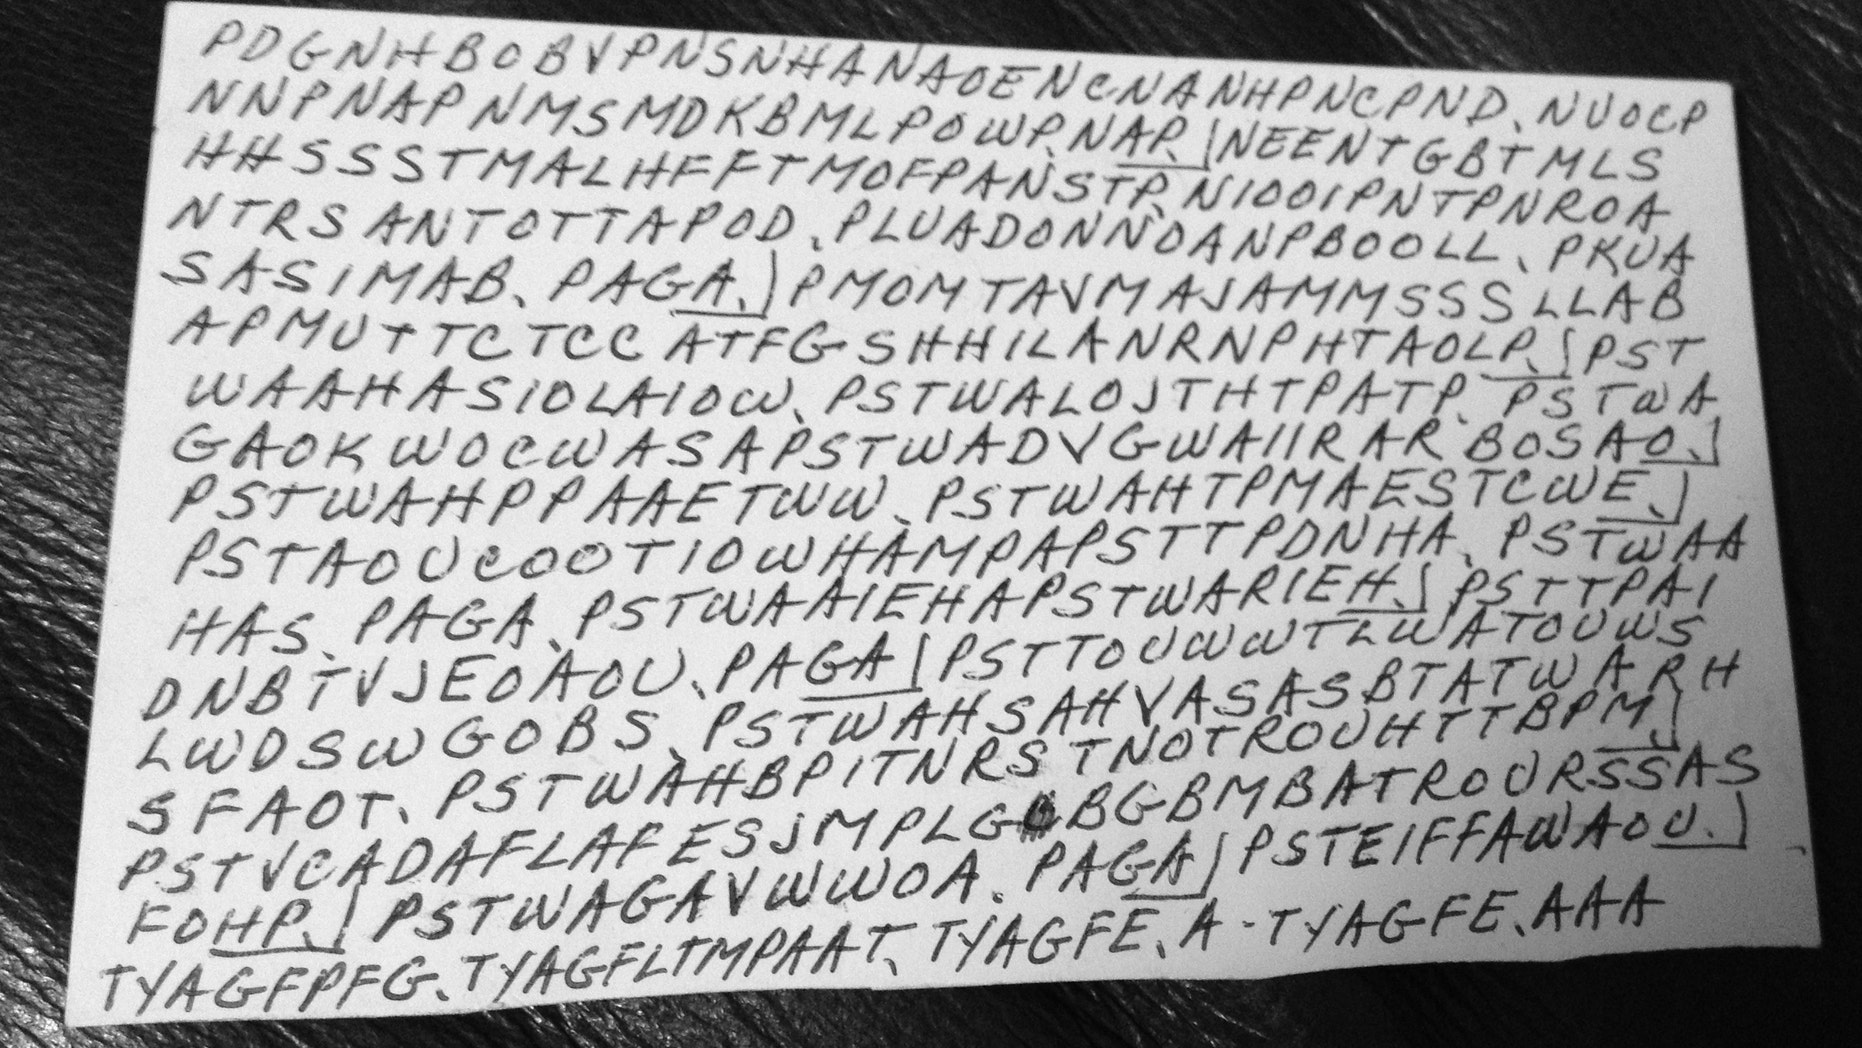 PDGNHBOBVPNSNHANAOENCNANHPNCPND, NUOCP
NNPNAPNMSMDKBMLPOWP, NAP. NEENTGBTMLS
HHSSSTMALHFFTMOFPANSTP, NIOOIPNTPNROA
NTRS ANTOTTAPOD, PLUADONNOANPBOOLL, PKUA
SASIMAB, PAGA. PMOMTAVMAJAMMSSSLLAB
APMUTTCTCC ATFGSHHILANRNPHTAOLP. PST
WAAHASIOLAIOW, PSTWALOJTHTPATP, PSTWA
GAOKWOCWASAPSTWADVGWAIIRARBOSAO.
PSTWAHPPAAETWW, PSTWAHTPMAESTCWE.
PSTAOUCOOTIOWHAMPAPSTTPDNHA, PSTWAA
HAS, PAGA, PSTWAAAIEHAPSTWARIEH. PSTTPAI
DNBTVJEOAOU, PAGA PSTTOUWWTLWATOUWS
LWDSWGOBS, PSTWAHSAHVASASBTATWARH
SFAOT, PSTWAHBPITNRSTNOTROUHTTBPM.
PSTVCADAFLAFESJMPLGBGBMBATROURSSAS
FOHP. PSTWAGAVWWOA, PAGA PSTEIFFAWAOU.
TYAGFPFG, TYAGFLTMPAAT, TYAGFE, A-TYAGFE, AAA